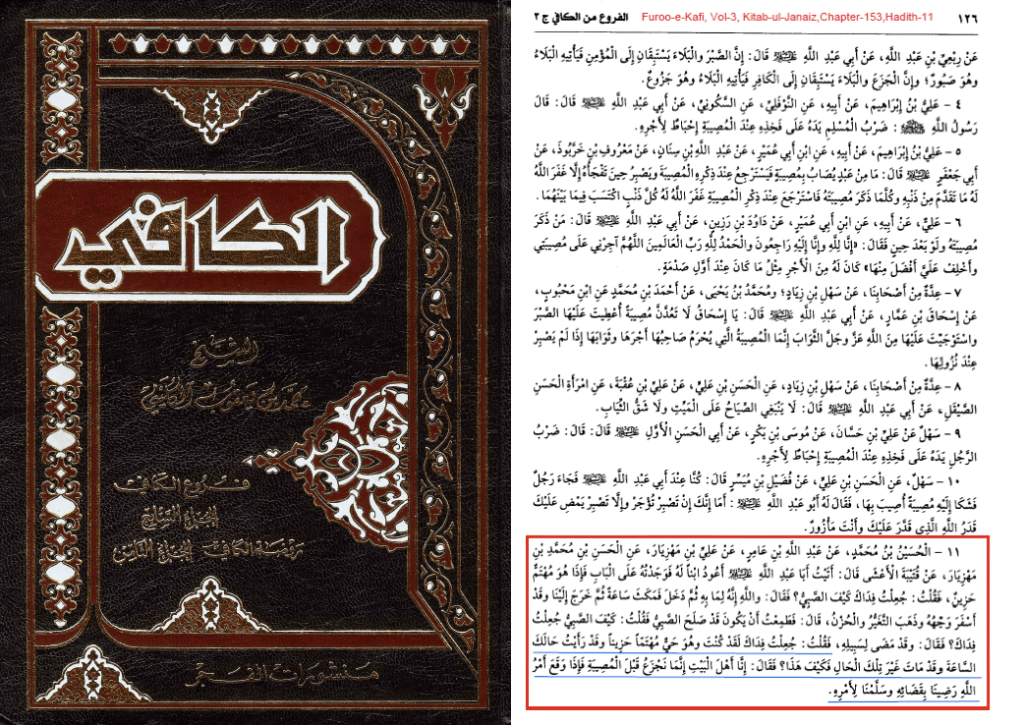 الكافي
الشيخ
محمد بن يعقوب الكليني
فروع الكافي
الجزء السابع
روضة الكافي الجزء الثامن
منشورات الفجر
١٢٦ Furoo-e-Kafi, Vol-3, Kitab-ul-Janaiz,Chapter-153,Hadith-11 الفروع من الكافي ج ٣
عَنْ رِبْعِيِّ بْنِ عَبْدِ اللَّهِ، عَنْ أَبِي عَبْدِ اللَّهِ عليه السلام قَالَ: إِنَّ الصَّبْرَ وَالْبَلَاءَ يَسْتَبِقَانِ إِلَى الْمُؤْمِنِ فَيَأْتِيهِ الْبَلَاءُ
وَهُوَ صَبُورٌ؛ وإِنَّ الْجَزَعَ وَالْبَلَاءَ يَسْتَبِقَانِ إِلَى الْكَافِرِ فَيَأْتِيهِ الْبَلَاءُ وهُوَ جَزُوعٌ.
٤ - عَلِيُّ بْنُ إِبْرَاهِيمَ، عَنْ أَبِيهِ، عَنِ النَّوْفَلِيِّ، عَنِ السَّكُونِيِّ، عَنْ أَبِي عَبْدِ اللَّهِ عليه السلام قَالَ: قَالَ
رَسُولُ اللَّهِ ﷺ: ضَرْبُ الْمُسْلِمِ يَدَهُ عَلَى فَخِذِهِ عِنْدَ الْمُصِيبَةِ إِحْبَاطٌ لِأَجْرِهِ.
٥ - عَلِيُّ بْنُ إِبْرَاهِيمَ، عَنْ أَبِيهِ، عَنِ ابْنِ أَبِي عُمَيْرٍ، عَنْ عَبْدِ اللَّهِ بْنِ سِنَانٍ، عَنْ مَعْرُوفِ بْنِ خَرَّبُوذَ، عَنْ
أَبِي جَعْفَرٍ عليه السلام قَالَ: مَا مِنْ عَبْدٍ يُصَابُ بِمُصِيبَةٍ فَيَسْتَرْجِعُ عِنْدَ ذِكْرِهِ الْمُصِيبَةَ ويَصْبِرُ حِينَ تَفْجَأُهُ إِلَّا غَفَرَ اللَّهُ
لَهُ مَا تَقَدَّمَ مِنْ ذَنْبِهِ وكُلَّمَا ذَكَرَ مُصِيبَتَهُ فَاسْتَرْجَعَ عِنْدَ ذِكْرِ الْمُصِيبَةِ غَفَرَ اللَّهُ لَهُ كُلَّ ذَنْبٍ اكْتَسَبَ فِيمَا بَيْنَهُمَا.
٦ - عَلِيٌّ، عَنْ أَبِيهِ، عَنِ ابْنِ أَبِي عُمَيْرٍ، عَنْ دَاوُدَ بْنِ رَزِينٍ، عَنْ أَبِي عَبْدِ اللَّهِ عليه السلام قَالَ: مَنْ ذَكَرَ
مُصِيبَتَهُ ولَوْ بَعْدَ حِينٍ فَقَالَ: «إِنَّا لِلَّهِ وإِنَّا إِلَيْهِ رَاجِعُونَ والْحَمْدُ لِلَّهِ رَبِّ الْعَالَمِينَ اللَّهُمَّ آجِرْنِي عَلَى مُصِيبَتِي
وأَخْلِفْ عَلَيَّ أَفْضَلَ مِنْهَا» كَانَ لَهُ مِنَ الْأَجْرِ مِثْلُ مَا كَانَ عِنْدَ أَوَّلِ صَدْمَةٍ.
٧ - عِدَّةٌ مِنْ أَصْحَابِنَا، عَنْ سَهْلِ بْنِ زِيَادٍ؛ ومُحَمَّدُ بْنُ يَحْيَى، عَنْ أَحْمَدَ بْنِ مُحَمَّدٍ عَنِ ابْنِ مَحْبُوبٍ،
عَنْ إِسْحَاقَ بْنِ عَمَّارٍ، عَنْ أَبِي عَبْدِ اللَّهِ عليه السلام قَالَ: يَا إِسْحَاقُ لَا تَعُدَّنَّ مُصِيبَةً أُعْطِيتَ عَلَيْهَا الصَّبْرَ
واسْتَوْجَبْتَ عَلَيْهَا مِنَ اللَّهِ عَزَّ وجَلَّ الثَّوَابَ إِنَّمَا الْمُصِيبَةُ الَّتِي يُحْرَمُ صَاحِبُهَا أَجْرَهَا وثَوَابَهَا إِذَا لَمْ يَصْبِرْ
عِنْدَ نُزُولِهَا.
٨ - عِدَّةٌ مِنْ أَصْحَابِنَا، عَنْ سَهْلِ بْنِ زِيَادٍ، عَنِ الْحَسَنِ بْنِ عَلِيٍّ، عَنْ عَلِيِّ بْنِ عُقْبَةَ، عَنِ امْرَأَةِ الْحَسَنِ
الصَّيْقَلِ، عَنْ أَبِي عَبْدِ اللَّهِ عليه السلام قَالَ: لَا يَنْبَغِي الصِّيَاحُ عَلَى الْمَيِّتِ ولَا شَقُّ الثِّيَابِ.
٩ - سَهْلٌ عَنْ عَلِيِّ بْنِ حَسَّانَ، عَنْ مُوسَى بْنِ بَكْرٍ، عَنْ أَبِي الْحَسَنِ الْأَوَّلِ عليه السلام قَالَ: قَالَ: ضَرْبُ
الرَّجُلِ يَدَهُ عَلَى فَخِذِهِ عِنْدَ الْمُصِيبَةِ إِحْبَاطٌ لِأَجْرِهِ.
١٠ - سَهْلٌ، عَنِ الْحَسَنِ بْنِ عَلِيٍّ، عَنْ فُضَيْلِ بْنِ مُيَسِّرٍ قَالَ: كُنَّا عِنْدَ أَبِي عَبْدِ اللَّهِ عليه السلام فَجَاءَ رَجُلٌ
فَشَكَا إِلَيْهِ مُصِيبَةً أُصِيبَ بِهَا، فَقَالَ لَهُ أَبُو عَبْدِ اللَّهِ عليه السلام: أَمَا إِنَّكَ إِنْ تَصْبِرْ تُؤْجَرْ وإِلَّا تَصْبِرْ يَمْضِ عَلَيْكَ
قَدَرُ اللَّهِ الَّذِي قَدَّرَ عَلَيْكَ وأَنْتَ مَأْزُورٌ.
١١ - الْحُسَيْنُ بْنُ مُحَمَّدٍ، عَنْ عَبْدِ اللَّهِ بْنِ عَامِرٍ، عَنْ عَلِيِّ بْنِ مَهْزِيَارَ، عَنِ الْحَسَنِ بْنِ مُحَمَّدِ بْنِ
مَهْزِيَارَ، عَنْ قُتَيْبَةَ الْأَعْشَى قَالَ: أَتَيْتُ أَبَا عَبْدِ اللَّهِ عليه السلام أَعُودُ ابْناً لَهُ فَوَجَدْتُهُ عَلَى الْبَابِ فَإِذَا هُوَ مُهْتَمٌّ
حَزِينٌ، فَقُلْتُ: جُعِلْتُ فِدَاكَ كَيْفَ الصَّبِيُّ؟ فَقَالَ: واللَّهِ إِنَّهُ لِمَا بِهِ ثُمَّ دَخَلَ فَمَكَثَ سَاعَةً ثُمَّ خَرَجَ إِلَيْنَا وقَدْ
أَسْفَرَ وَجْهُهُ وذَهَبَ التَّغَيُّرُ والْحُزْنُ، قَالَ: فَطَمِعْتُ أَنْ يَكُونَ قَدْ صَلَحَ الصَّبِيُّ فَقُلْتُ: كَيْفَ الصَّبِيُّ جُعِلْتُ
فِدَاكَ؟ فَقَالَ: وقَدْ مَضَى لِسَبِيلِهِ، فَقُلْتُ: جُعِلْتُ فِدَاكَ لَقَدْ كُنْتَ وهُوَ حَيٌّ مُهْتَمّاً حَزِيناً وقَدْ رَأَيْتُ حَالَكَ
السَّاعَةَ وقَدْ مَاتَ غَيْرَ تِلْكَ الْحَالِ فَكَيْفَ هَذَا؟ فَقَالَ: إِنَّا أَهْلَ الْبَيْتِ إِنَّمَا نَجْزَعُ قَبْلَ الْمُصِيبَةِ فَإِذَا وَقَعَ أَمْرُ
اللَّهِ رَضِينَا بِقَضَائِهِ وسَلَّمْنَا لِأَمْرِهِ.